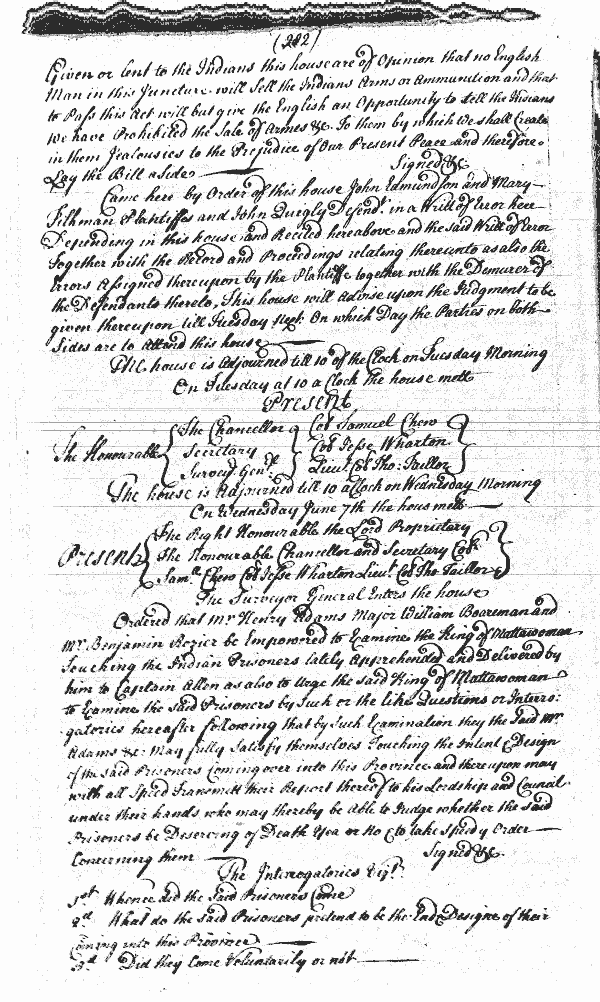 (282)
Given or lent to the Indians this house are of Opinion that no English
Man in this Juncture will Sell the Indians Arms or Ammunition and that
to Pass this Act will but give the English an Opportunity to tell the Indians
we have Prohibited the Sale of Armes &c. To them by which we shall Create
in them Jealousies to the Prejudice of Our Present Peace and therefore
Lay the Bill aside Signed &c
Came here by Order of this house John Edmundson and Mary
Tilghman Plantiffes and John Quigly Defendt. in a Writt of Error here
Depending in this house and Recited hereabove and the said Writt of Error
Together with the Record and Proceedings relating thereunto as also the
Errors Assigned thereupon by the Plantiffe together with the Demurer of
the Defendants thereto, This house will Advise upon the Judgment to be
given thereupon till Tuesday Next: On which Day the Parties on both
Sides are to Attend this house
The house is Adjourned till 10 of the Clock on Tuesday Morning
On Tuesday at 10 a Clock the house mett
Present
The Honourable { The Chancellor } Coll Samuel Chew }
Secretary Coll Jesse Wharton
Survey Genll Lieut Coll Tho: Taillor
The house is Adjourned till 10 aClock on Wednesday Morning
On Wednesday June 7th the hous mett
Present { The Right Honourable the Lord Proprietary }
The Honourable Chancellor and Secretary Coll
Samll Chew Coll Jesse Wharton Lieut Coll Tho Taillor
The Surveyor General Enters the house
Ordered that Mr Henry Adams Major William Boareman and
Mr. Benjamin Rozier be Empowered to Examine the King of Mattawoman
Touching the Indian Prisoners lately Apprehended and Delivered by
him to Captain Allen as also to Urge the said King of Mattawoman
to Examine the said Prisoners by Such or the like Questions or Interro:
gatories hereafter following that by Such Examination they the Said Mr
Adams &c: May fully Satisfy themselves Touching the Intent & Design
of the said Prisoners Coming over into this Province and thereupon may
with all Speed Transmitt their Report thereof to his Lordship and Council
under their hands who may thereby be Able to Judge whether the said
Prisoners be Deserving of Death Yea or No & to take Speedy Order
Concerning them Signed &c.
The Interrogatories Vizt
1st Whence did the Said Prisoners Come
2d What do the said Prisoners pretend to be the End & Designe of their
Coming into this Province
3d Did they Come Voluntarily or not